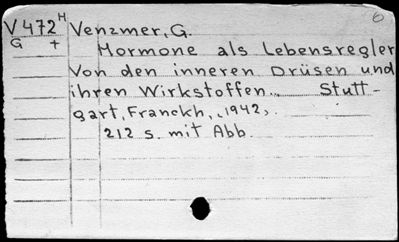 6
V 472 H Venzmer, G.
G + Hormone als Lebensregler
Von den inneren Drüsen und
ihren Wirkstoffen. Stutt-
gart, Franckh, 1942.
212 s. mit Abb.